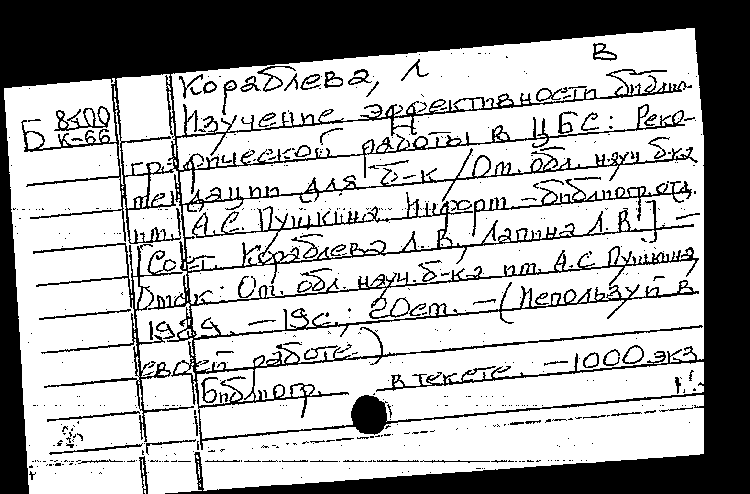 В
Кораблева, Л
Б 8400
К-66
Изучение эффективности библио-
графической работы в ЦБС: Реко-
мендации для б-к / Ом. обл. науч. б-ка
им. А.С. Пушкина. Информ. - библиогр. отд.
[Сост. Кораблева Л. В., Лапина Л. В.]. —
Омск: Ом. обл. науч. б-ка им. А.С. Пушкина,
1989. — 19с.; 20см. — (Используй в
своей работе)
Библиогр. в тексте. — 1000 экз